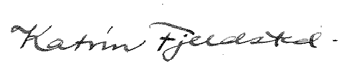 Katrín Fjeldsted.